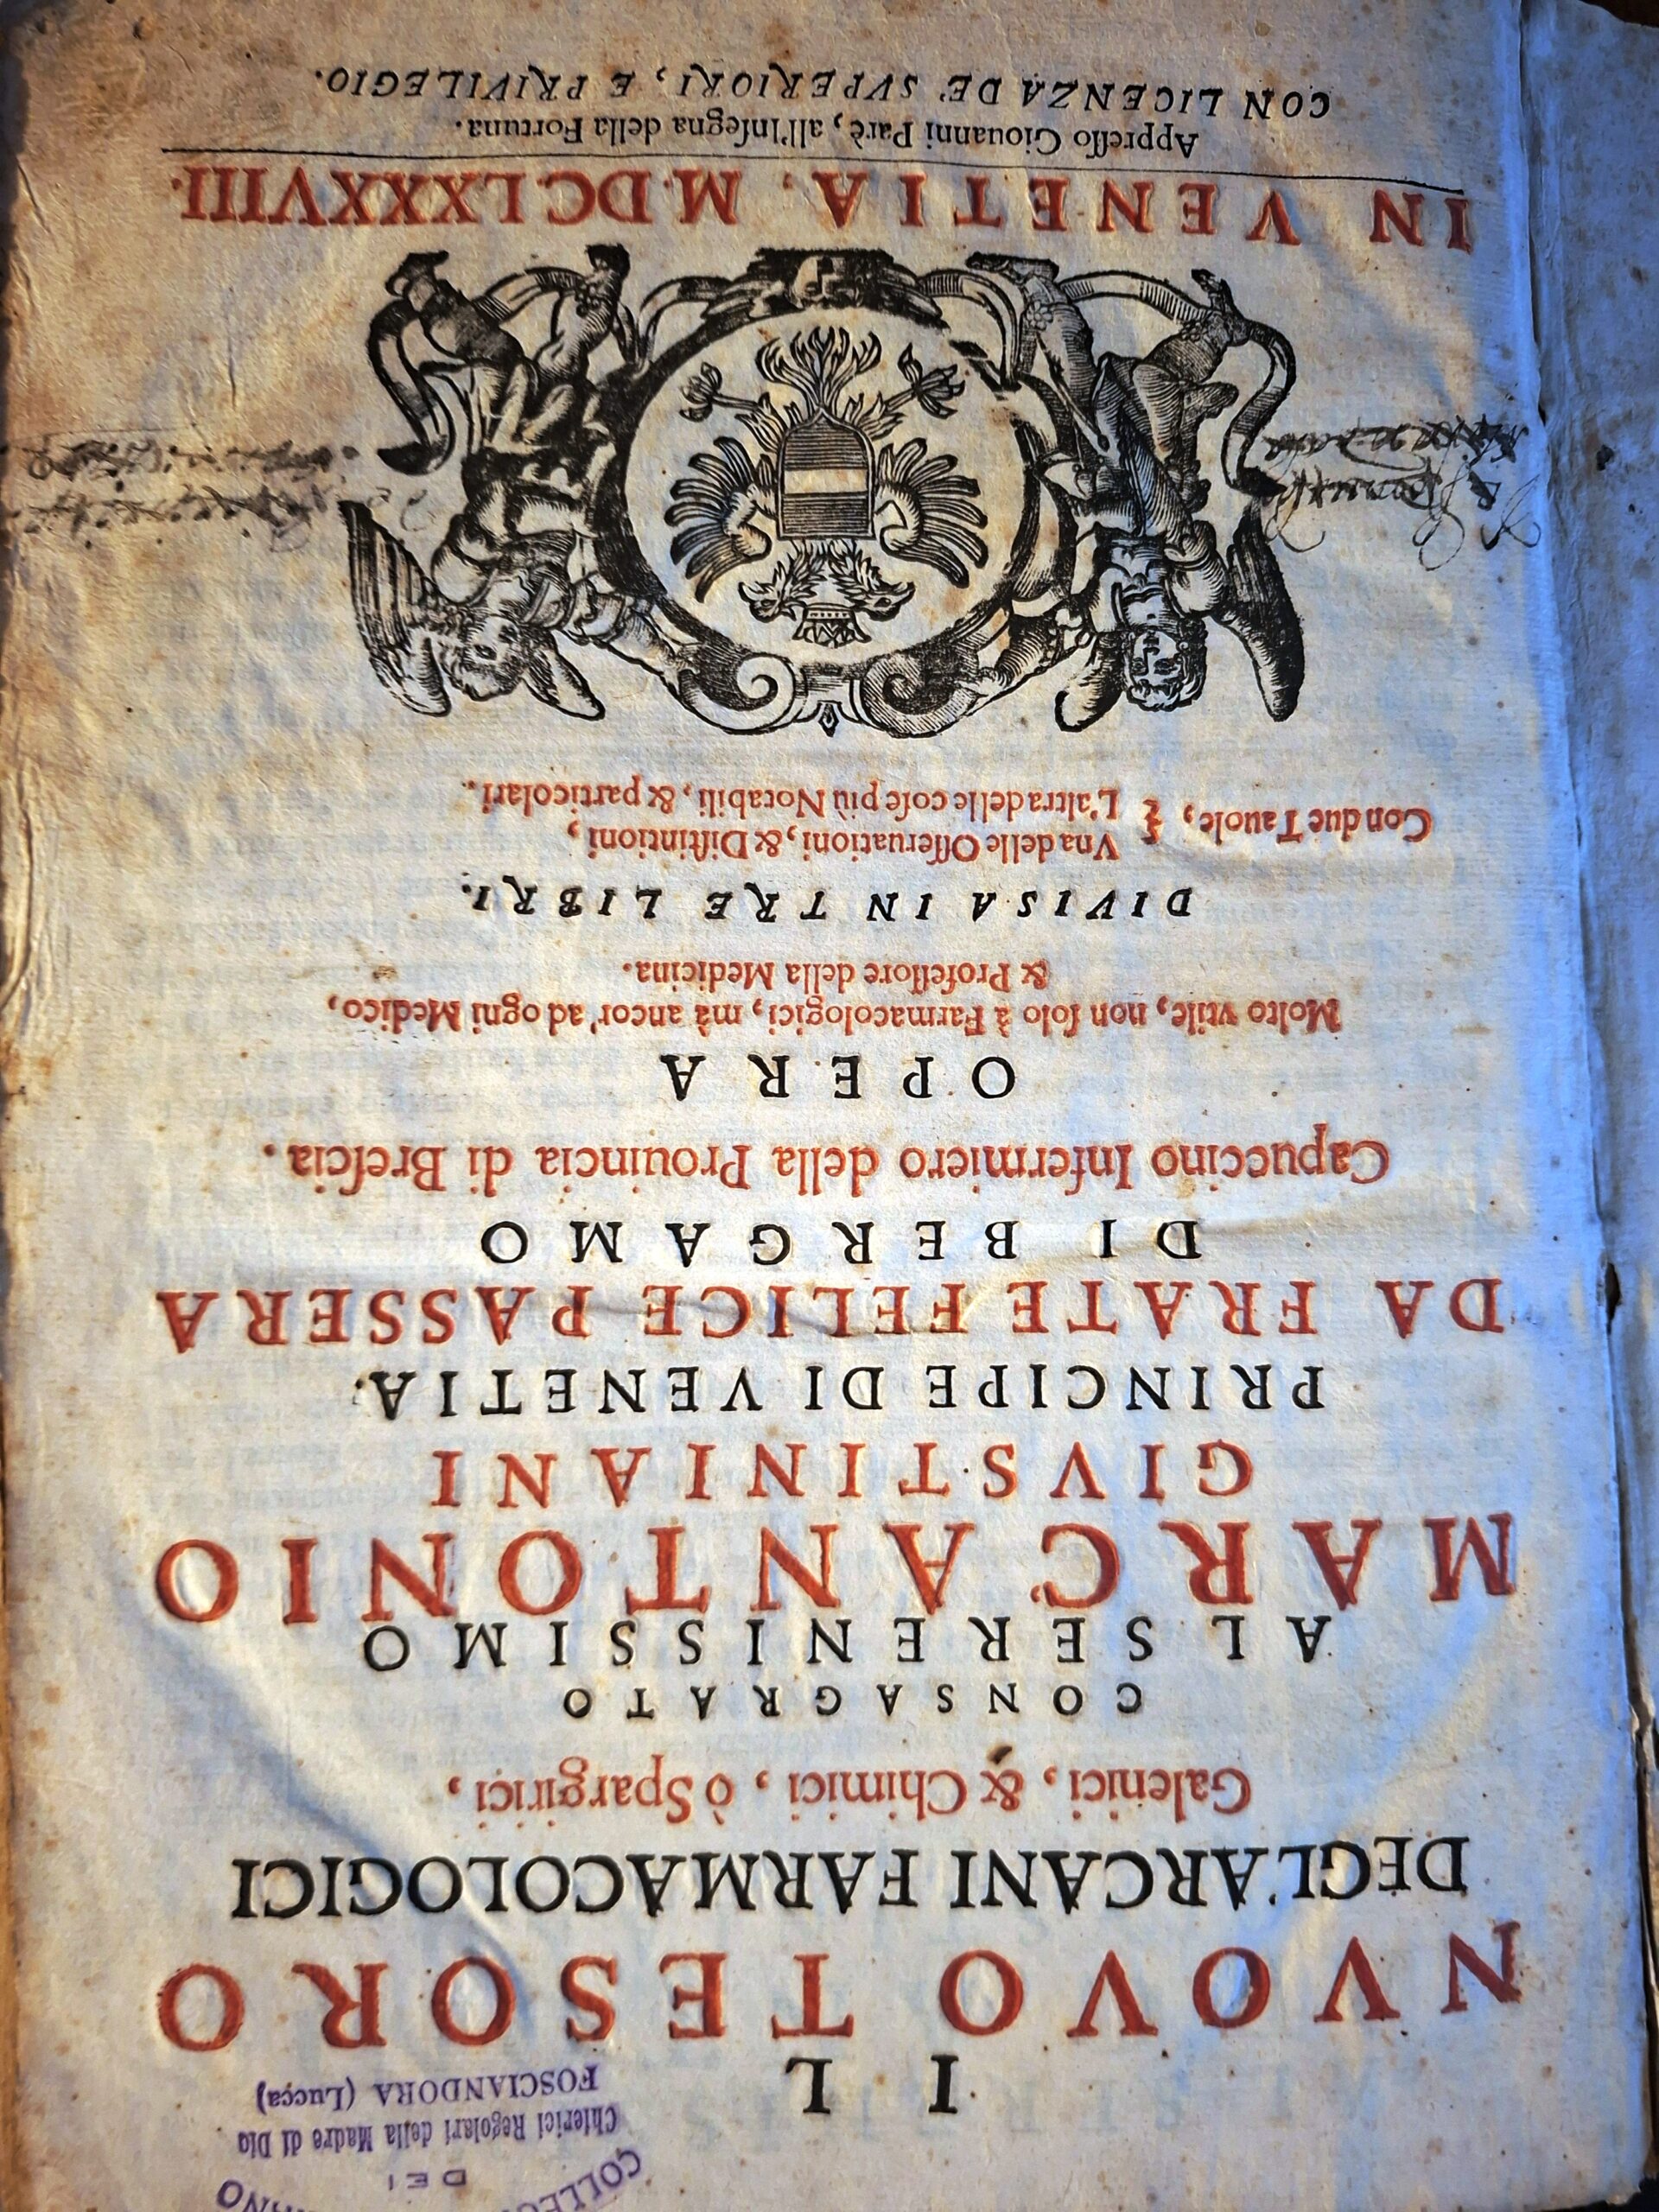 DEI
Chierici Regolari della Madre di Dio
FOSCIANDORA (Lucca)
IL
NVOVO TESORO
DEGL'ARCANI FARMACOLOGICI
Galenici, & Chimici, ò Spargirici,
CONSAGRATO
AL SERENISSIMO
MARC'ANTONIO
GIVSTINIANI
PRINCIPE DI VENETIA.
DA FRATE FELICE PASSERA
DI BERGAMO
Capuccino Infermiero della Prouincia di Breſcia.
OPERA
Molto vtile, non ſolo à Farmacologici, mà ancor' ad ogni Medico,
& Profeſſore della Medicina.
DIVISA IN TRE LIBRI.
Con due Tauole, { Vna delle Oſſeruationi, & Diſtintioni,
L'altra delle coſe più Notabili, & particolari.
IN VENETIA, M.DC.LXXXVIII.
Appreſſo Giouanni Parè, all'Inſegna della Fortuna.
CON LICENZA DE' SVPERIORI, E PRIVILEGIO.